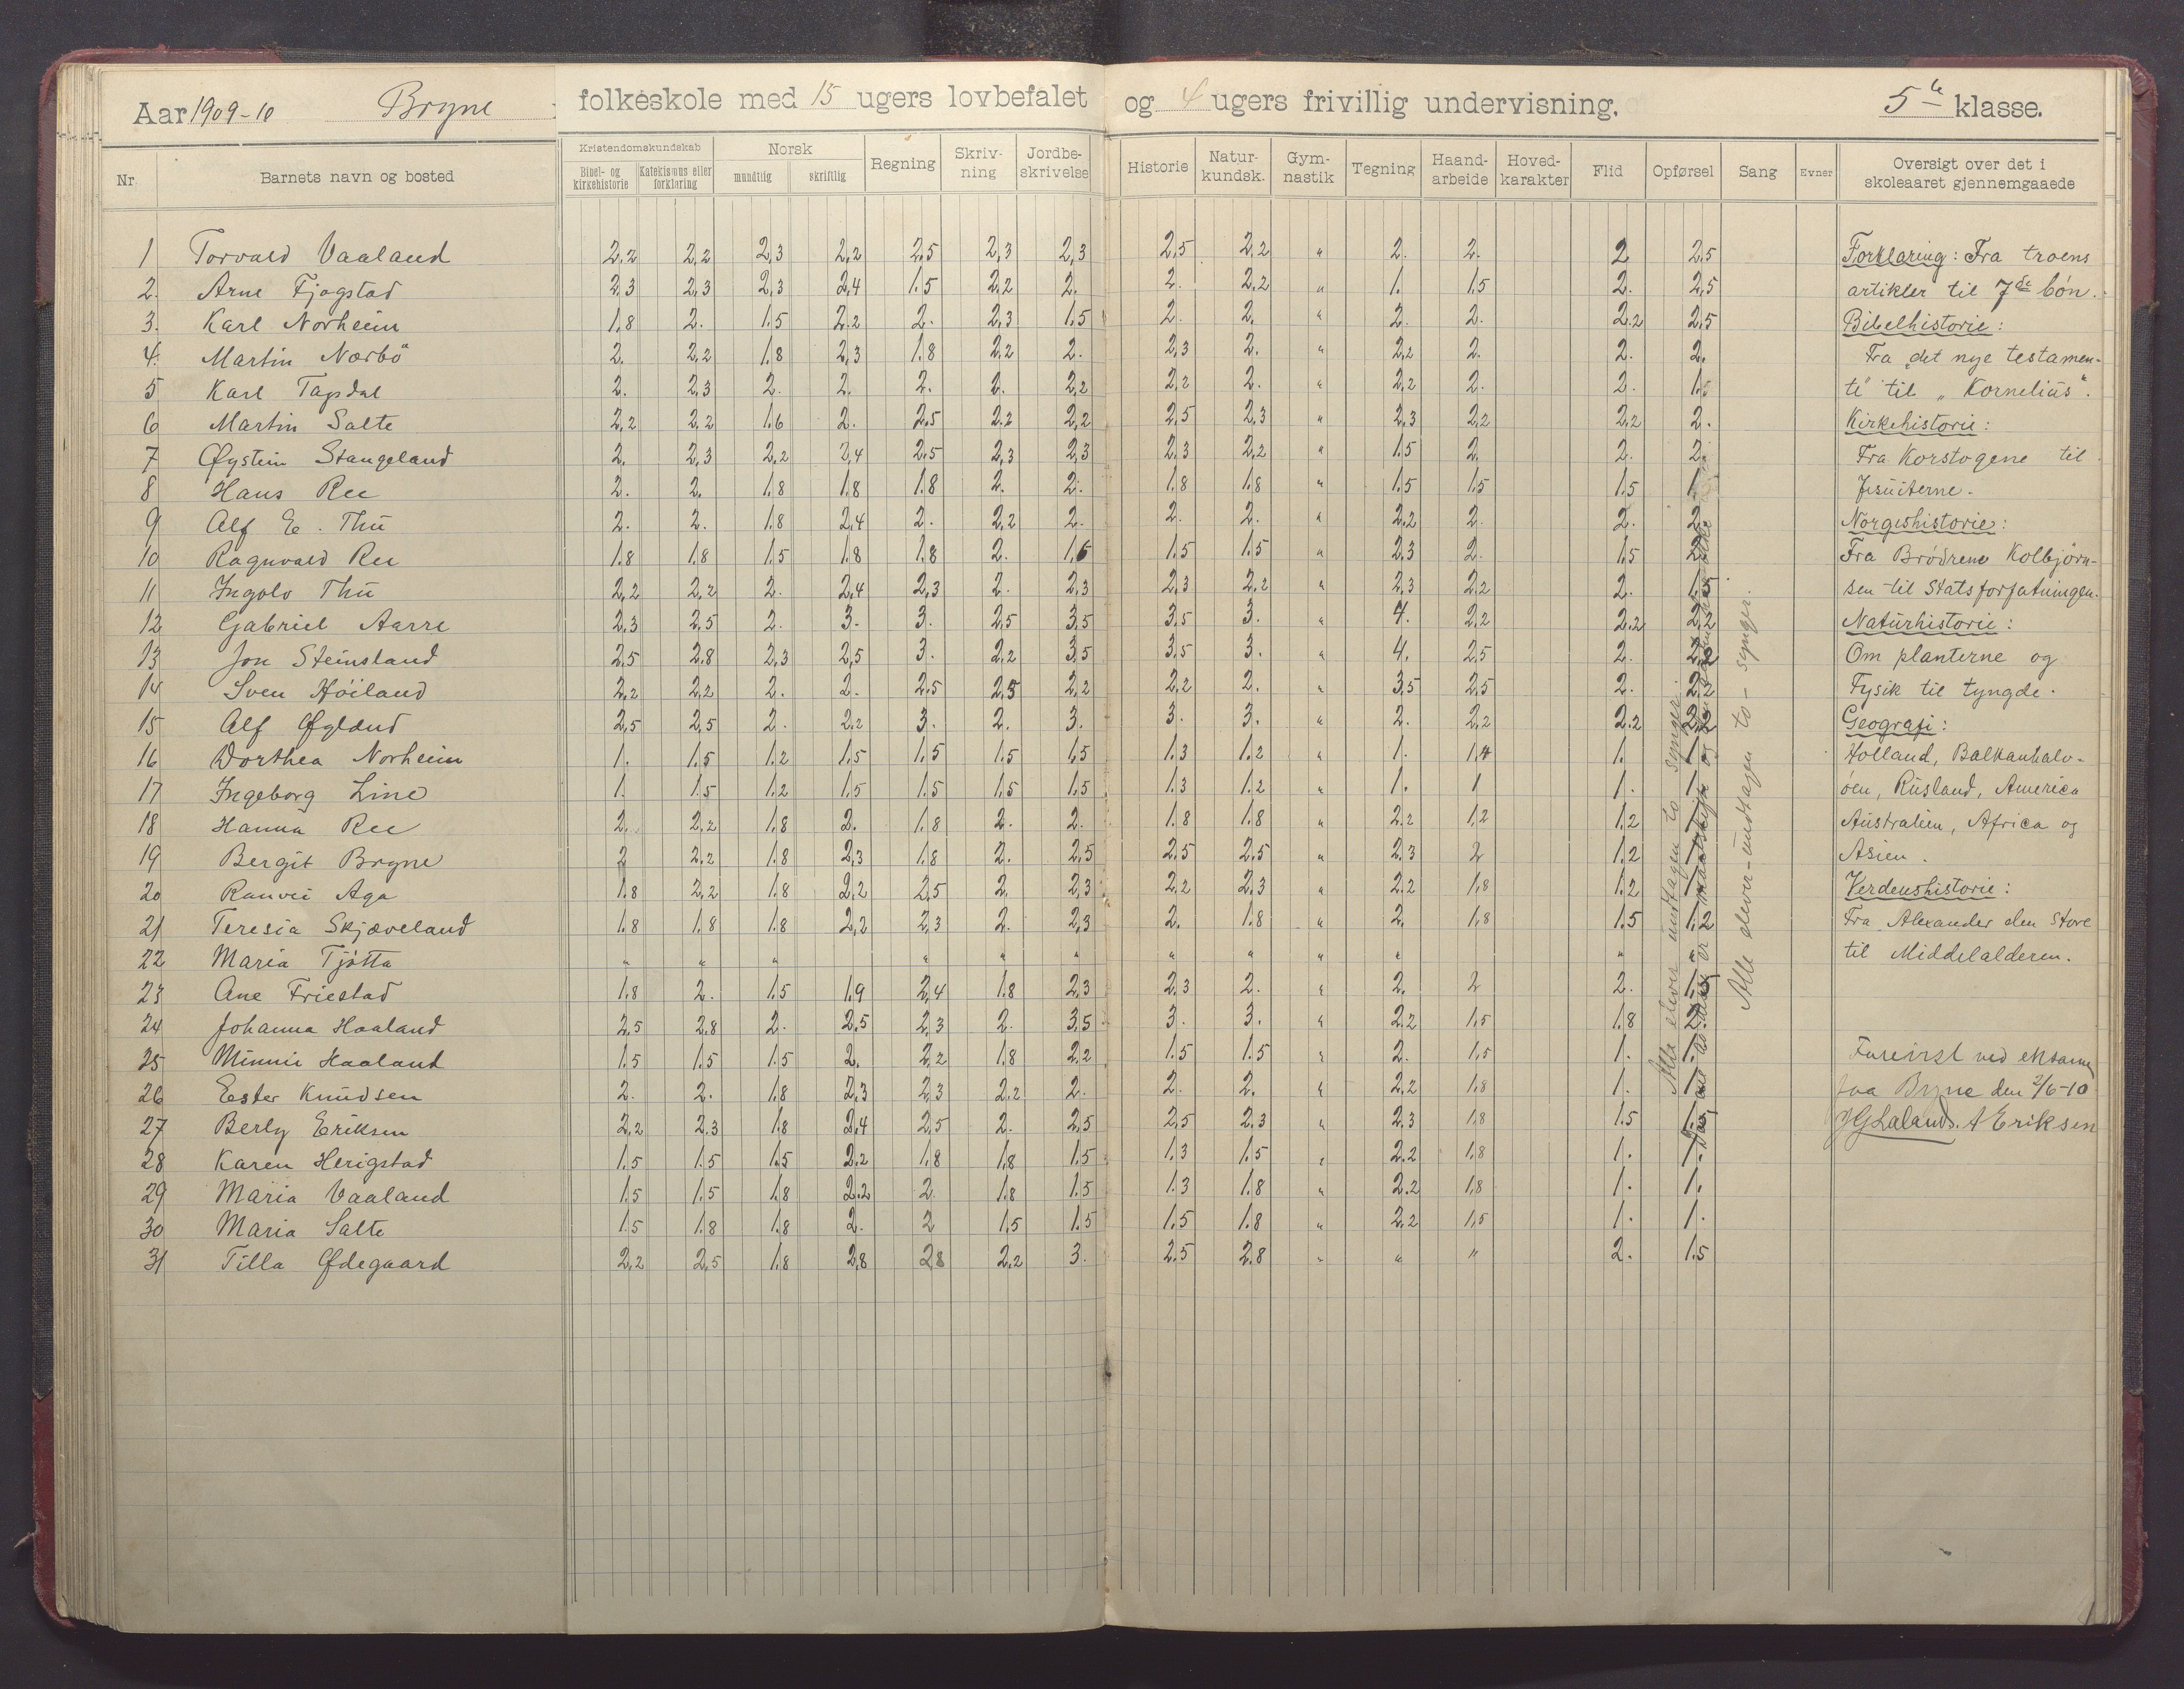 Aar 1909-10 Bryne folkeskole med 15 ugers lovbefalet og 4 ugers frivillig undervisning. 5te klasse.
Nr. Barnets navn og bosted Kristendomskundskab Bibel- og kirkehistorie Katekismus eller forklaring Norsk mundtlig skriftlig Regning Skrivning Jordbeskrivelse Historie Naturkundsk. Gymnastik Tegning Haandarbeide Hovedkarakter Flid Opførsel Sang Evner Oversigt over det i skoleaaret gjennemgaaede
1 Torvald Vaaland 2,2 2,2 2,3 2,2 2,5 2,3 2,3 2,5 2,2 " 2. 2. 2 2,5
2. Arne Fjogstad 2,3 2,3 2,3 2,4 1.5 2,2 2. 2. 2,2 " 1. 1.5 2. 2,5
3. Karl Norheim 1,8 2. 1.5 2.2 2. 2,3 1.5 2. 2. " 2. 2. 2.2 2.5
4. Martin Nærbö 2. 2,2 1.8 2,3 1.8 2.2 2. 2,3 2. " 2,2 2. 2. 2.
5 Karl Tagdal 2. 2,3 2. 2. 2. 2. 2,2 2,2 2. " 2,2 2. 2. 1.5
6 Martin Salte 2,2 2,2 1.6 2. 2.5 2.2 2,2 2,5 2,3 " 2,3 2,2 2,2 2.
7 Øystein Stangeland 2. 2,3 2,2 2,4 2.5 2,3 2,3 2,3 2,2 " 1.5 2. 2. 2.
8 Hans Ree 2. 2. 1.8 1.8 1.8 2. 2. 1.8 1.8 " 1.5 1.5 1.5 1.
9 Alf E. Thu 2. 2. 1.8 2,4 2. 2,2 2. 2. 2. " 2.2 2. 2. 2.
10 Ragnvald Ree 1.8 1.8 1.5 1.8 1.8 2. 1.5 1.5 1.5 " 2,3 2. 1.5 2.
11 Ingolv Thu 2,2 2,2 2. 2,4 2,3 2. 2,3 2,3 2,2 " 2,3 2,2 2. 1.5
12 Gabriel Aarre 2.3 2,5 2. 3. 3. 2,5 3,5 3,5 3. " 4. 2,2 2.2 2,2
13 Jon Steinsland 2,5 2.8 2,3 2,5 3. 2,2 3,5 3,5 3. " 4. 2,5 2. 2,2
14 Sven Höiland 2,2 2,2 2. 2. 2.5 2,5 2,2 2,2 2. " 3,5 2,5 2. 2,2
15 Alf Øglænd 2,5 2,5 2. 2.2 3. 2. 3. 3. 3. " 2. 2,2 2.2 2,2
16 Dorthea Norheim 1. 1.5 1.2 1.5 1.5 1.5 1,5 1.3 1.2 " 1. 1,4 1. 1.
17 Ingeborg Line 1. 1.5 1.2 1.5 1.5 1.5 1,5 1.3 1.2 " 1. 1 1. 1.
18 Hanna Ree 2. 2,2 1.8 2. 1.8 2. 2. 1.8 1.8 " 2.2 1,2 1,2 1.
19 Bergit Bryne 2 2,2 1.8 2,3 1.8 2. 2,5 2.5 2,5 " 2.3 2 1.2 1.
20 Ranvei Aga 1.8 2,2 1.8 2,2 2,5 2. 2,3 2,2 2,3 " 2.2 1,8 1.2 1.
21 Teresia Skjæveland 1.8 1.8 1.8 2,2 2,3 2. 2,3 2. 1.8 " 2. 1,8 1.5 1.2
22 Maria Tjötta " " " " " " " " " " " "
23 Ane Friestad 1.8 2. 1.5 1.9 2,4 1.8 2,3 2.3 2. " 2. 2 2. 1.5
24 Johanna Haaland 2,5 2.8 2. 2,5 2,3 2. 3,5 3. 3. " 2.2 1.5 1.8 2.
25 Minnie Haaland 1.5 1.5 1.5 2. 2,2 1.8 2.2 1.5 1.5 " 2. 1,5 1. 1.
26 Ester Knudsen 2. 2. 1.8 2,3 2,3 2.2 2. 2. 2. " 2.2 1.8 1. 1.
27 Berly Eriksen 2,2 2.3 1.8 2,4 2,5 2. 2,5 2,5 2.3 " 2.3 1.8 1.5 1.5
28 Karen Herigstad 1.5 1.5 1.5 2.2 1.8 1.8 1.5 1.3 1.5 " 2.2 1,8 1. 1.
29 Maria Vaaland 1.5 1.5 1.8 2.2 2. 1.8 1.5 1.3 1.8 " 2.2 1,8 1. 1.
30 Maria Salte 1.5 1.8 1.8 2. 2 1.5 1.5 1,5 1.8 " 2,2 1,5 1. 1.
31 Tilla Ødegaard 2,2 2,5 1.8 2,8 2,8 2.2 3. 2.5 2.8 " " " 2. 1.5
Alle elever undtagen to synger.
Alle elever - undtagen to - synger.
Forklaring: Fra troens
artikler til 7de bön.
Bibelhistorie:
Fra "det nye testamen-
te" til "Kornelius".
Kirkehistorie:
Fra Korstogene til
Jesuiterne.
Norgeshistorie:
Fra Brödrene Kolbjörn-
sen til Statsforfatningen.
Naturhistorie:
Om planterne og
Fysik til tyngde.
Geografi:
Holland, Balkanhalv-
öen, Rusland, America
Australien, Africa og
Asien.
Verdenshistorie:
Fra Alexander den store
til Middelalderen.
Forevist ved eksamen
paa Bryne den 2/6-10
A Eriksen